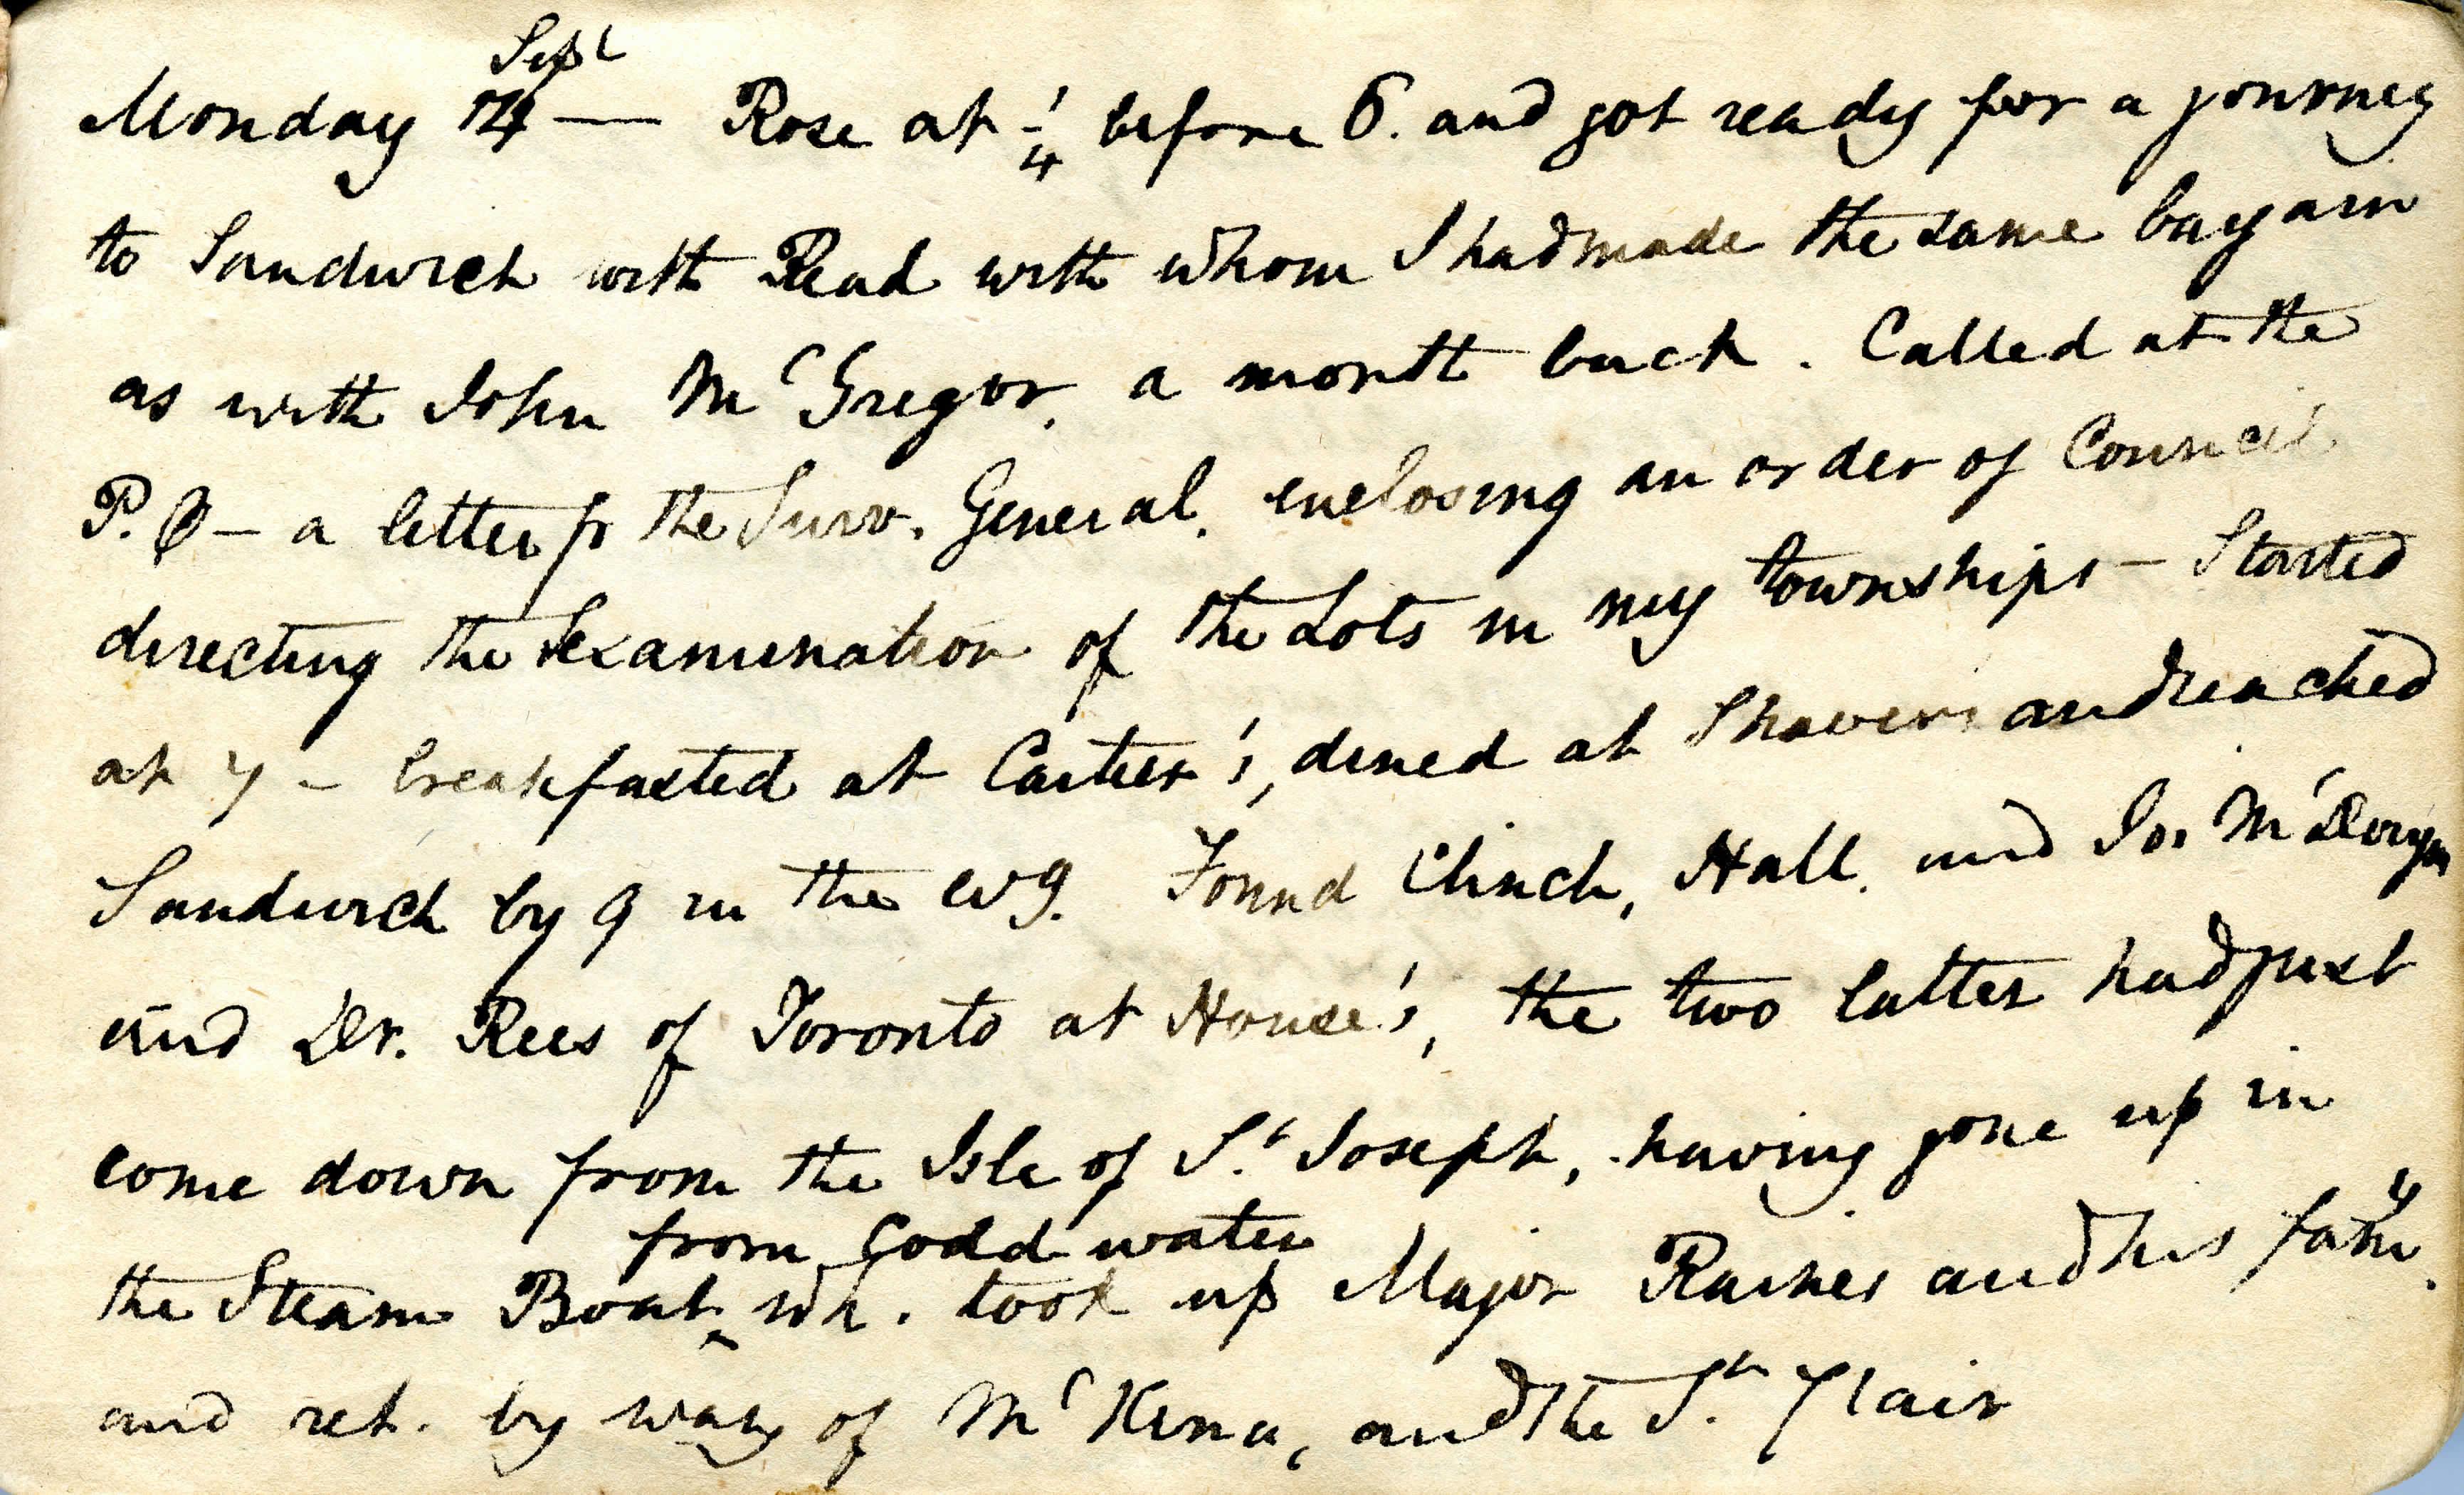 Sept
Monday 14 — Rose at 1/4 before 6. and got ready for a journey
to Sandwich with Read with whom I had made the same bargain
as with John McGregor, a month back. Called at the
P.O — a letter fr the Surv. General, enclosing an order of Council
directing the examination of the Lots in my townships — Started
at 7 — breakfasted at Carter's, dined at Shavers and reached
Sandwich by 9 in the evg. Found Clinch, Hall, and Jos McDougal
and Dr. Rees of Toronto at House's, the two latter had just
come down from the Isle of St Joseph, having gone up in
from Codd water
the Steam Boat ^ wh. took up Major Raines and his famy.
and ret. by way of McKina, and the St Clair